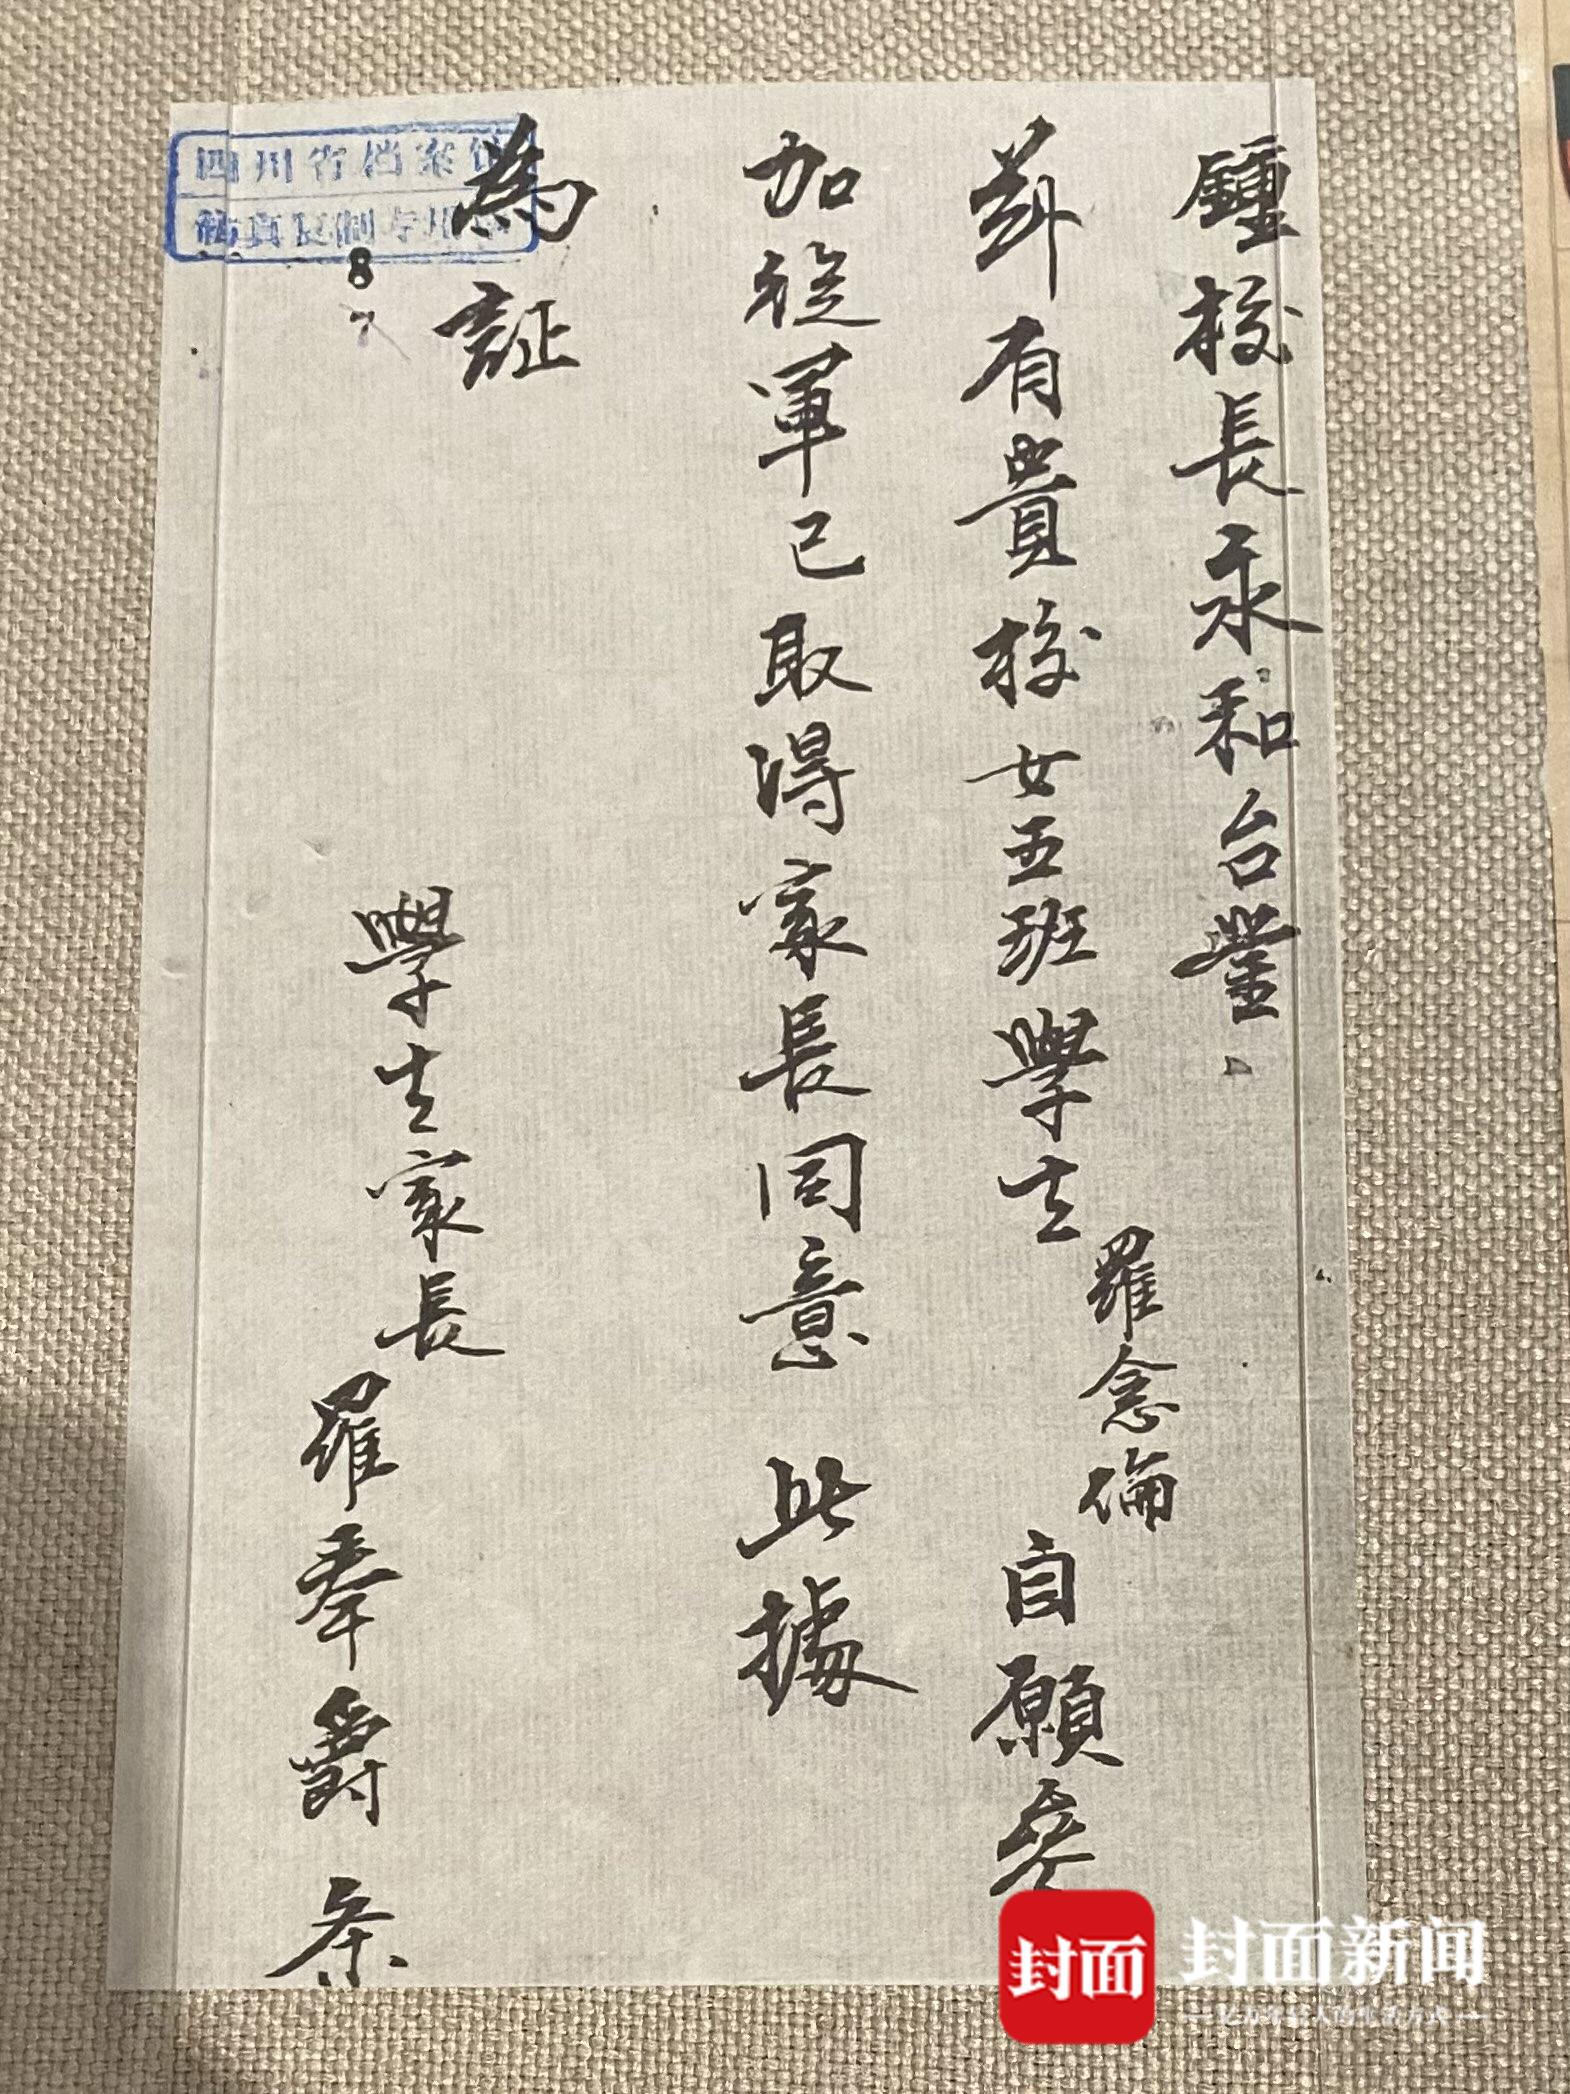 鍾校長永和台鑒、
茲有貴校女五班學生羅念倫自願參
加從軍已取得家長同意此據
為証
學生家長羅奉爵条
四川省档案馆
仿真复制专用章
8
7
封面
封面新闻